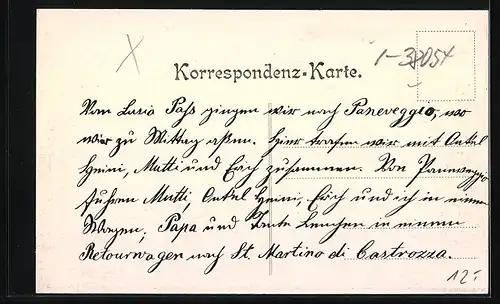 1-38054
Korrespondenz-Karte.
Vom Lusia Paß gingen wir nach Paneveggio, wo
wir zu Mittag aßen. Hier trafen wir mit Onkel
Heini, Mutti und Erich zusammen. Von Paneveggio
fuhren Mutti, Onkel Heini, Erich und ich in einem
Wagen, Papa und Tante Lenchen in einem
Retourwagen nach St. Martino di Castrozza.
12.-